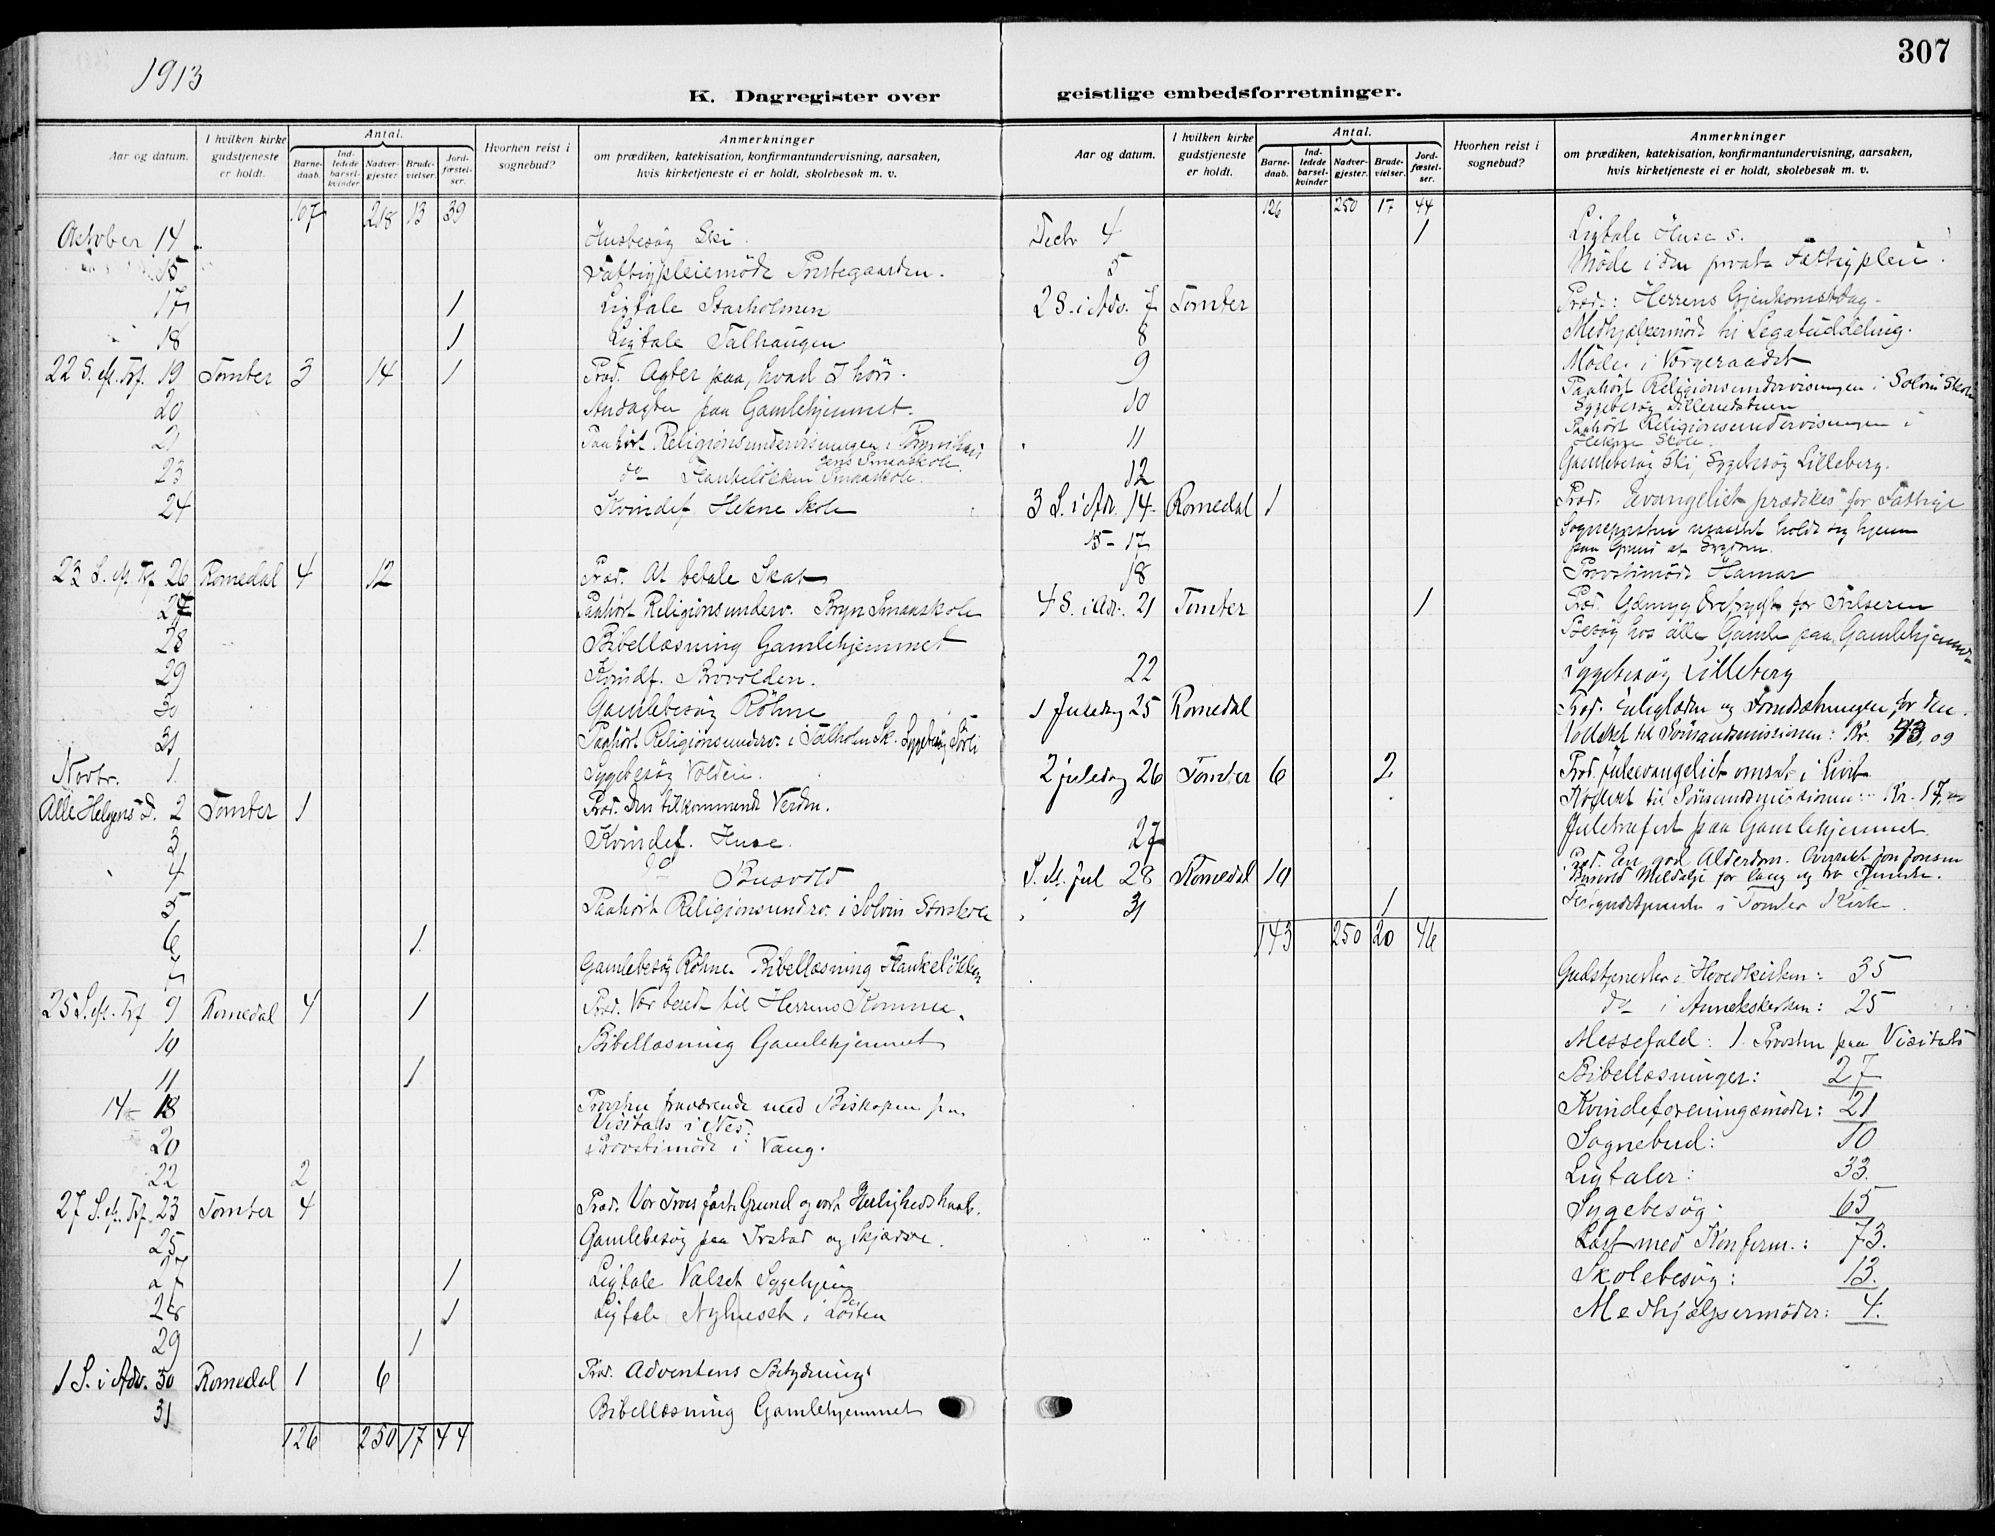 1913
307
K. Dagregister over geistlige embedsforretninger.
Aar og datum. I hvilken kirke gudstjeneste er holdt. Antal. Barnedaab. Indledede barselkvinder. Nadvergjester. Brudevielser. Jordfæstelser. Hvorhen reist i sognebud? Anmerkninger om prædiken, katekisation, konfirmantundervisning, aarsaken, hvis kirketjeneste ei er holdt, skolebesøk m. v.
107 218 13 39
October 14 Husbesøg Ski.
15 Fattigpleiemøde Prestegaarden.
17 1 Ligtale Starholmen
18 1 Ligtale Talhaugen
22 S. e. Trf. 19 Tomter 3 14 1 Præd. Agter paa, hvad I hør.
20 Andagter paa Gamlehjemmet.
21 Paahørt Religionsundervisningen i
gens Smaaskole.
23 do Flankeløkken Smaaskole.
24 Kvindef. Hekne Skole
23 S. e. Trf. 26 Romedal 4 12 Præd. At betale Skat
27 Paahørt Religionsunderv. Bryn Smaaskole
28 Bibellæsning Gamlehjemmet
29 Kvindf.
30 Gamlebesøg Røhne
31 Paahørt Religionsunderv. i Talholm Sk. Sygebesøg
Novbr. 1. Sygebesøg Volden.
Alle Helgens D. 2 Tomter 1 Præd. Den tilkommende Verden.
3 Kvindef. Huse.
4 do Busvold
5 Paahørt Religionsunderv. i Solvin Storskole
6 1.
7 Gamlebesøg Røhne. Bibellæsning Flankeløkken
25 S. e. Trf. 9 Romedal 4 1 Præd. Vær beredt til Herrens Komme.
10 Bibellæsning Gamlehjemmet
11 1
14 - 18 Provsten fraværende med Biskopen paa
Visitats i Nes.
20 Provstimøde i Vang.
22 2
27 S. e. Trf. 23 Tomter 4 Præd. Vor Troes faste Grund og vort Herligheds haab.
25 Gamlebesøg paa Irstad og
27 1 Ligtale Valset Sygehjem
28 1 Ligtale Nyhuset i Løiten
29 1
1 S. i Adv. 30 Romedal 1 6 Præd. Adventens Betydning.
31 Bibellæsning Gamlehjemmet
126 250 17 44
Aar og datum. I hvilken kirke gudstjeneste er holdt. Antal. Barnedaab. Indledede barselkvinder Nadvergjester. Brudevielser. Jordfæstelser. Hvorhen reist i sognebud? Anmerkninger om prædiken, katekisation, konfirmantundervisning, aarsaken, hvis kirketjeneste ei er holdt, skolebesøk m. v.
126 250 17 44
Decbr 4 1 Ligtale Huse s.
5 Møde i den private Fattigpleie.
2 S. i Adv. 7 Tomter Præd.: Herrens Gjenkomstdag.
8 Medhjælpermøde til Legatuddeling.
9 Møde i Vergeraadet
10 Paahørt Religionsundervisningen i Solvin Skole
Sygebesøg
11 Paahørt Religionsundervisningen i
Hekne Skole.
12 Gamlebesøg Ski, Sygebesøg Lilleberg.
3 S. i Adv. 14 Romedal 1 Præd. Evangeliet prædikes for Fattige
15 - 17 Sognepresten maattet holde sig hjemme
paa Grund af Sygdom.
18 Provstimøde Hamar
4 S. i Adv. 21 Tomter 1 Præd. Ydmyg Ærefrygt for Frelseren
Besøg hos alle Gamle paa Gamlehjemmet
22 Sygebesøg Lilleberg
1 Juledag 25 Romedal Præd. Juleglæden og Forudsætningen for den.
Kollekt til Sømandsmissionen: Kr. 43,09
2 juledag 26 Tomter 6 2. Præd. Juleevangeliet omsat i Livet
Kollekt til Sømandsmissionen: Kr. 17,
27 Juletræfest paa Gamlehjemmet.
S. e. Jul 28 Romedal 10 Præd. En god Alderdom. Overrakt Jon Jonsen
Busvold Medalje for lang og tro Tjeneste.
31 1 gudstjeneste i Tomter Kirke.
143 250 20 46
Gudstjenester i Hovedkirken: 35
do i Annekskirken: 25
Messefald: 1. Provsten paa Visitats
Bibellæsninger: 27
Kvindeforeningsmøder: 21
Sognebud: 10
Ligtaler: 33.
Sygebesøg: 65
Læst med Konfirm.: 73.
Skolebesøg: 13.
Medhjælpermøder: 4.